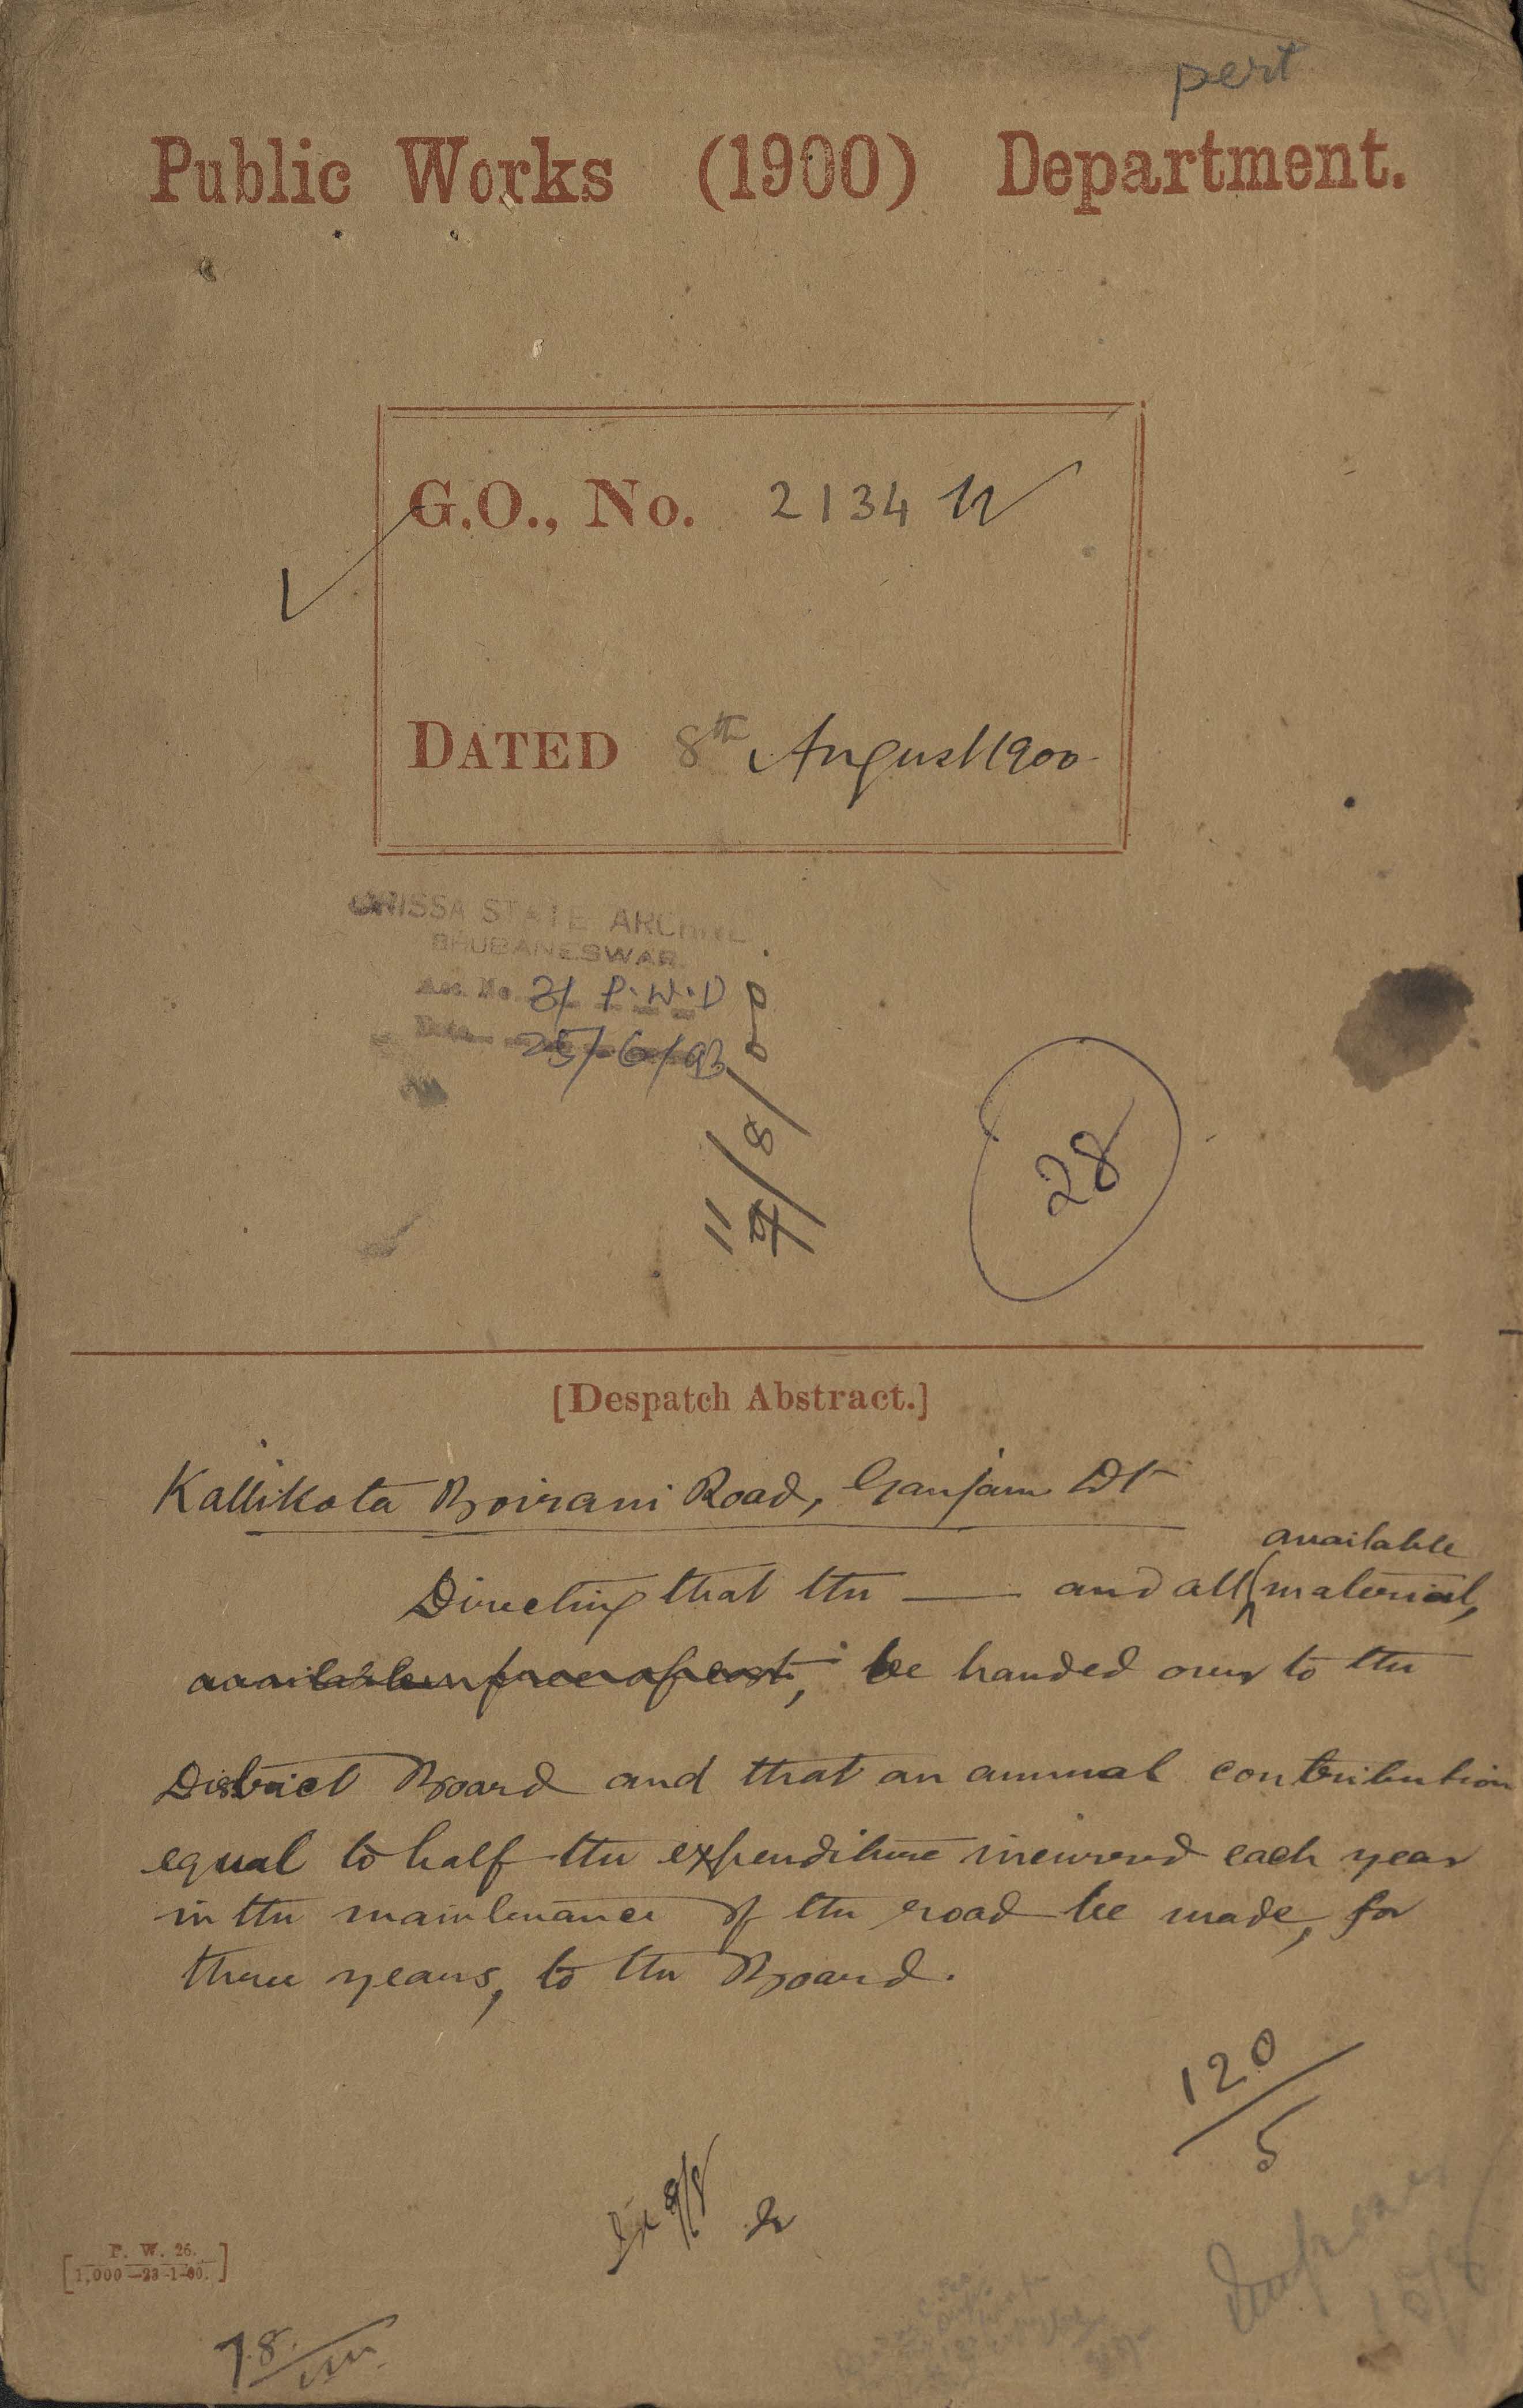 pert
Public Works (1900) Department.
G.O., No. 2134 W
DATED 8th August 1900
ORISSA STATE ARCHIVE
BHUBANESWAR.
Acc. No. 31 P.W.D
Date 25/6/93
11/8/00
28
[Despatch Abstract.]
Kallikota Boirani Road, Ganjam Dt
available
Directing that the — and all material,
available free of cost, be handed over to the
District Board and that an annual contribution
equal to half the expenditure incurred each year
in the maintenance of the road be made, for
three years, to the Board.
120/5
9/8
P. W. 26.
[1,000—23-1-00.]
78